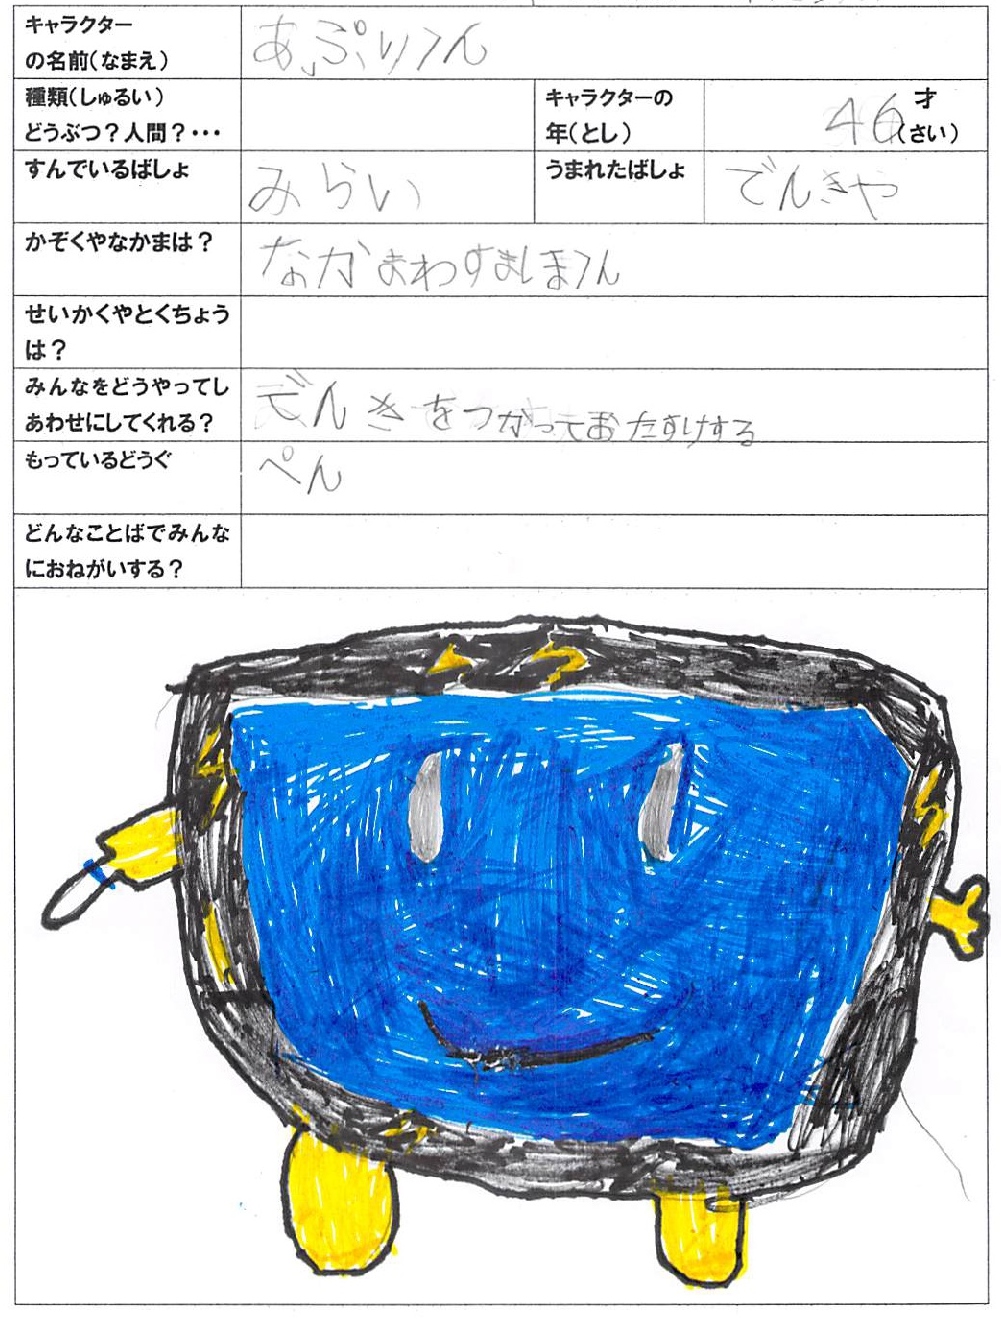 キャラクター
の名前(なまえ)
あぷりくん
種類(しゅるい)
どうぶつ?人間?・・・
キャラクターの
年(とし)
46才
(さい)
すんでいるばしょ
みらい
うまれたばしょ
でんきや
かぞくやなかまは?
なかまわすまほくん
せいかくやとくちょう
は?
みんなをどうやってし
あわせにしてくれる?
でんきをつかっておたすけする
もっているどうぐ
ぺん
どんなことばでみんな
におねがいする?